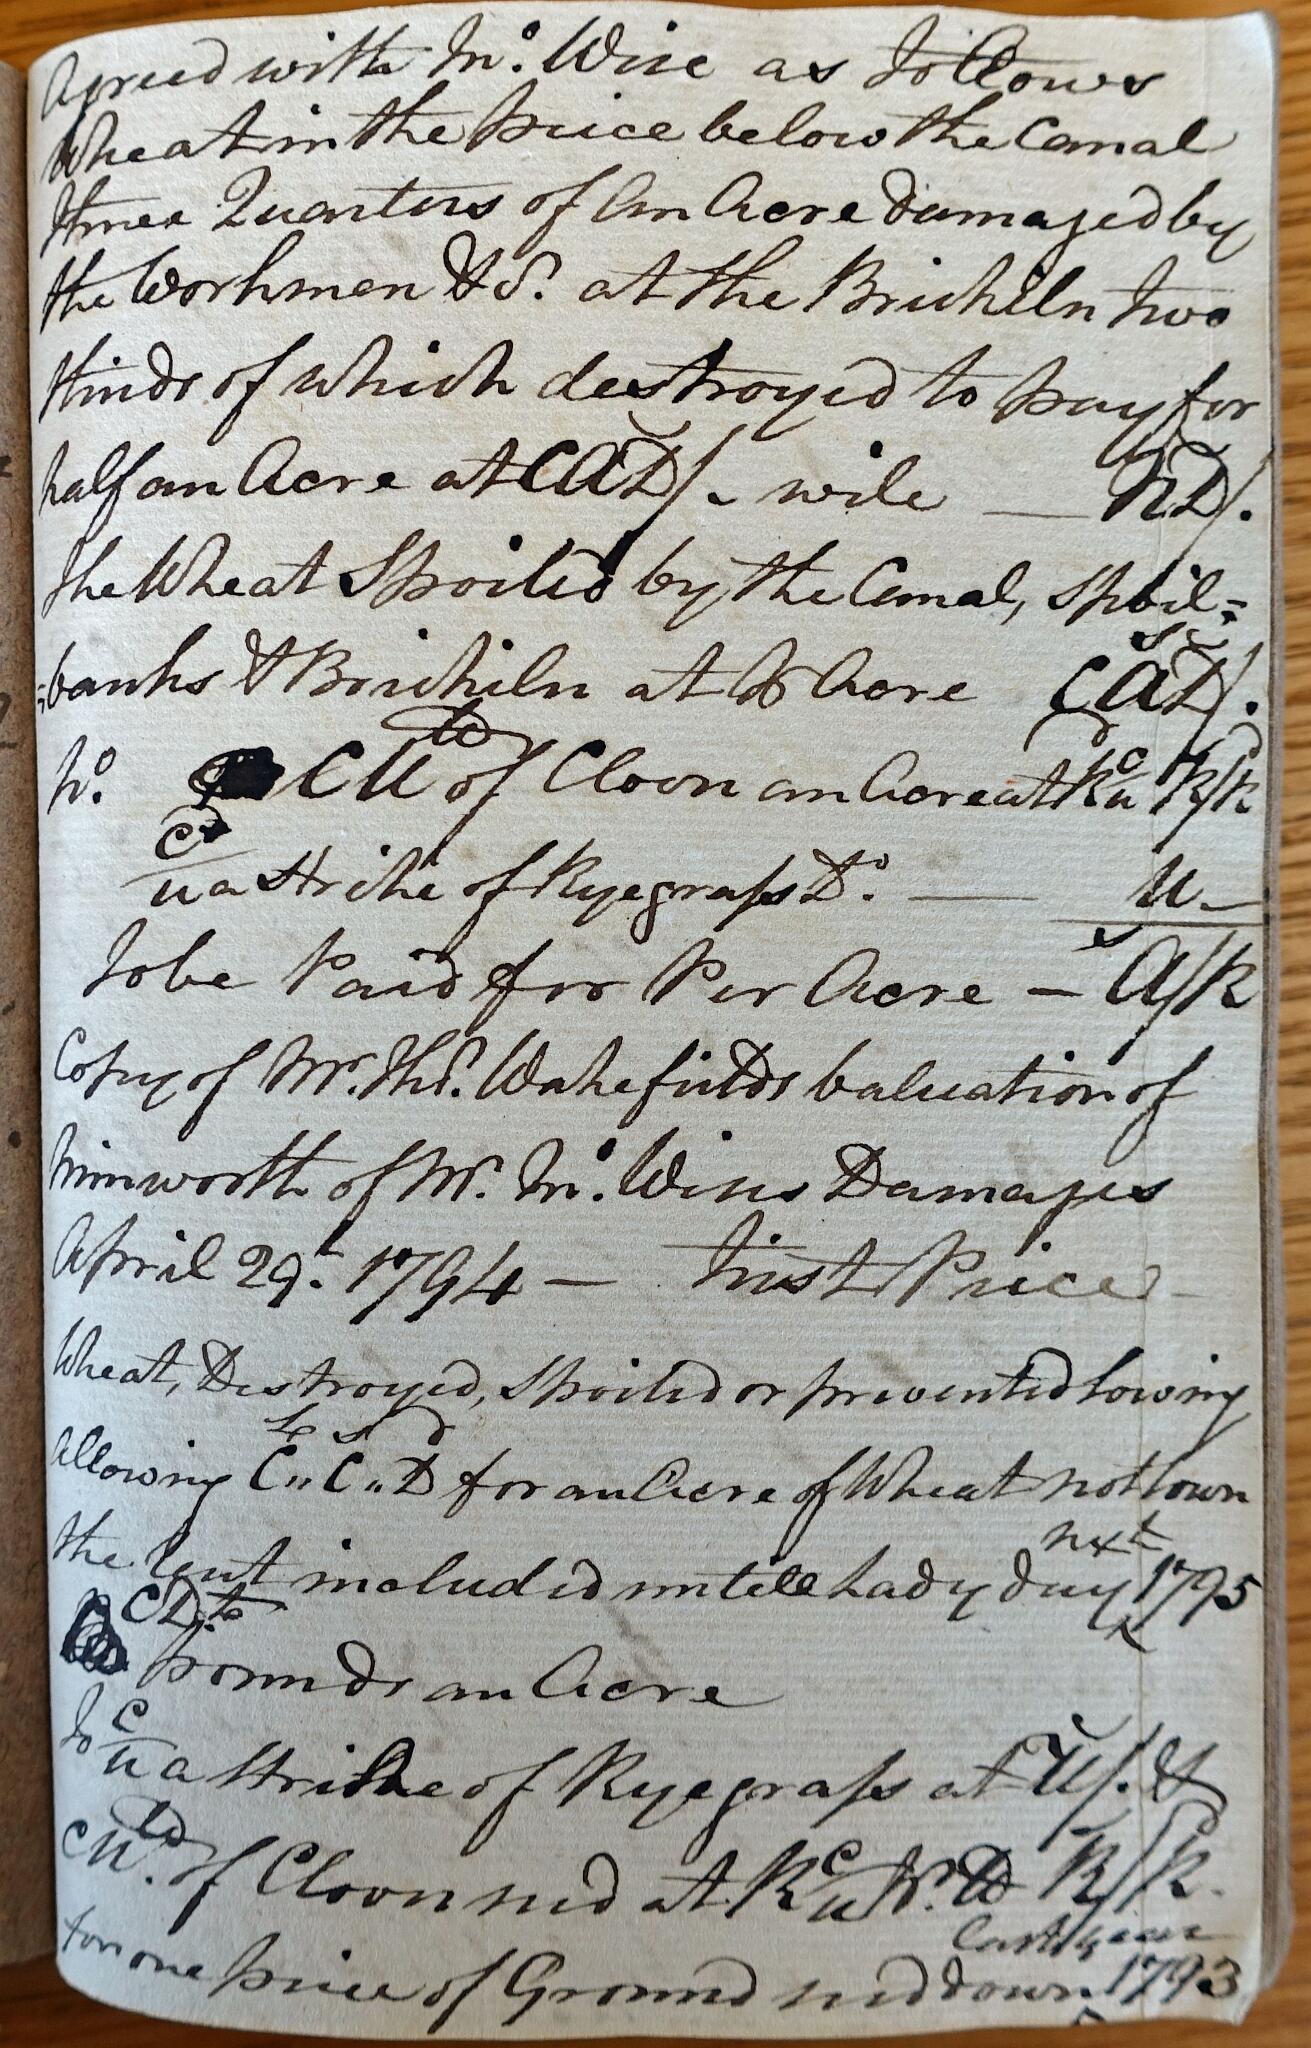 Agreed with Mr. Wise as follows
Wheat in the piece below the Canal
three Quarters of an Acre damaged by
the Workmen &c. at the Brickiln two
thirds of which destroyed to pay for
half an Acre at CAD/. wile — ND/.
the Wheat Spoiled by the Canal, Spoil=
=banks & Brickiln at Acre CAD/.
CU lb of Cloon an Acre at R c/u R/R
c/u a Strike of Ryegrass Do. — U —
To be Paid for Per Acre — A/R
Copy of Mr. Thos. Wakefields Valuation of
of Mr. Wises Damages
April 29t. 1794 — first Price
Wheat, Destroyed, Spoiled or prevented sowing
allowing C,, C,, D for an Acre of Wheat not sown
the Rent included untill Lady day next 1795
CD lb
pounds an Acre
c/u a Strike of Ryegrass at U/. &
CU lb. of Cloon seed at R c/u R/R.
for one piece of Ground seed down last year 1793